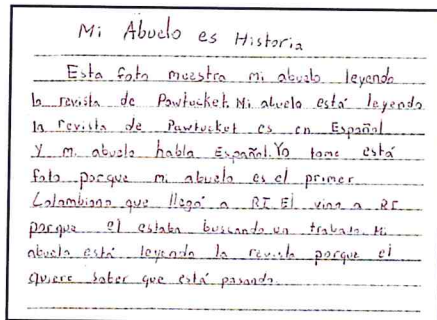 Mi Abuelo es Historia
Esta foto muestra mi abuelo leyendo
la revista de Pawtucket. Mi abuelo está leyendo
la revista de Pawtucket es en Español
Y mi abuelo habla Español. Yo tome está
foto porque mi abuelo es el primer
Colombiano que llegó a RI El vino a RI
porque el estaba buscando un trabajo. Mi
abuelo está leyendo la revista porque el
quiere saber que está pasando.